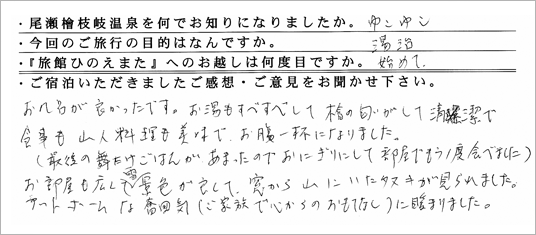 ・尾瀬檜枝岐温泉を何でお知りになりましたか。 ゆこゆこ
・今回のご旅行の目的はなんですか。 湯治
・『旅館ひのえまた』へのお越しは何度目ですか。 始めて
・ご宿泊いただきましたご感想・ご意見をお聞かせ下さい。
お風呂が良かったです。お湯もすべすべして 檜の匂いがして 清潔で
食事も 山人料理も美味で、お腹一杯になりました。
(最後の舞たけごはんがあまったのでおにぎりにして部屋でもう1度食べました)
お部屋も広しで 景色が良くて、窓から山にいたタヌキが見られました。
アットホームな雰囲気(ご家族で心からのおもてなし)に癒まりました。